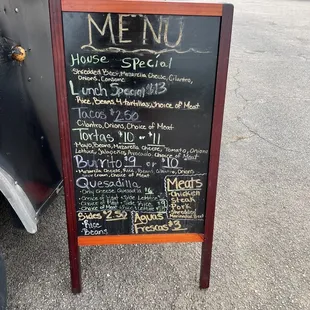 MENU
House Special
Shredded Beef, Mozarella Cheese, Cilantro,
Onions, Consome
Lunch Special $13
Rice, Beans, 4 tortillas, choice of Meat
Tacos $2.50
Cilantro, Onions, Choice of Meat
Tortas $10 or $11
Mayo, Beans, Mozarella Cheese, Tomato, Onions
Lettuce, Jalapeños, Avocado, Choice of Meat
Burrito $9 or $10
Mozarella Cheese, Rice, Beans, Onions
Cream, Choice of Meat
Quesadilla
Only Cheese Quesadilla $6
Choice of Meat
Choice of Meat
Meats
Chicken
Steak
Pork
Shredded
Marinated Beef
Sides $2.50
Rice
Beans
Aguas
Frescas $3